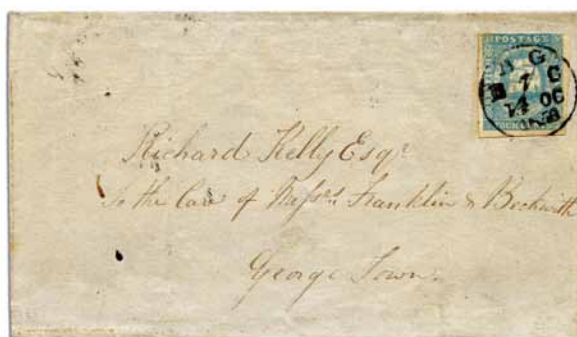 POSTAGE
Richard Kelly Esqr
To the Care of Messrs Franklin & Beckwith
George Town.